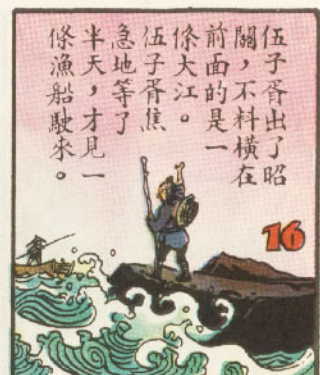 伍子胥出了昭
關，不料橫在
前面的是一
條大江。
伍子胥焦
急地等了
半天，才見一
條漁船駛來。
16